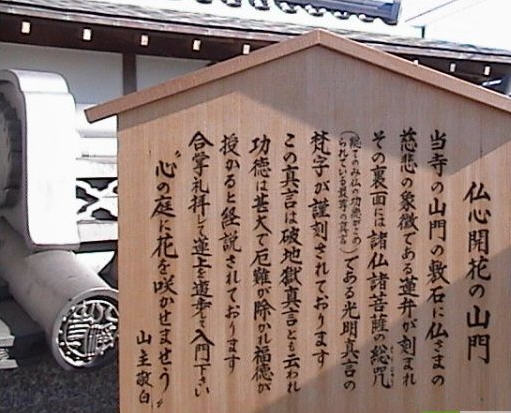 仏心開花の山門
当寺の山門の敷石に仏さまの
慈悲の象徴である蓮弁が刻まれ
その裏面には諸仏諸菩薩の総咒
(総てのみ仏の功徳がこめ
られている最高の真言)である光明真言の
梵字が謹刻されております
この真言は破地獄真言とも云われ
功徳は甚大で厄難が除かれ福徳が
授かると経説されております
合掌礼拝して蓮上を進歩して入門下さい
〝心の庭に花を咲かせませう〟
山主敬白